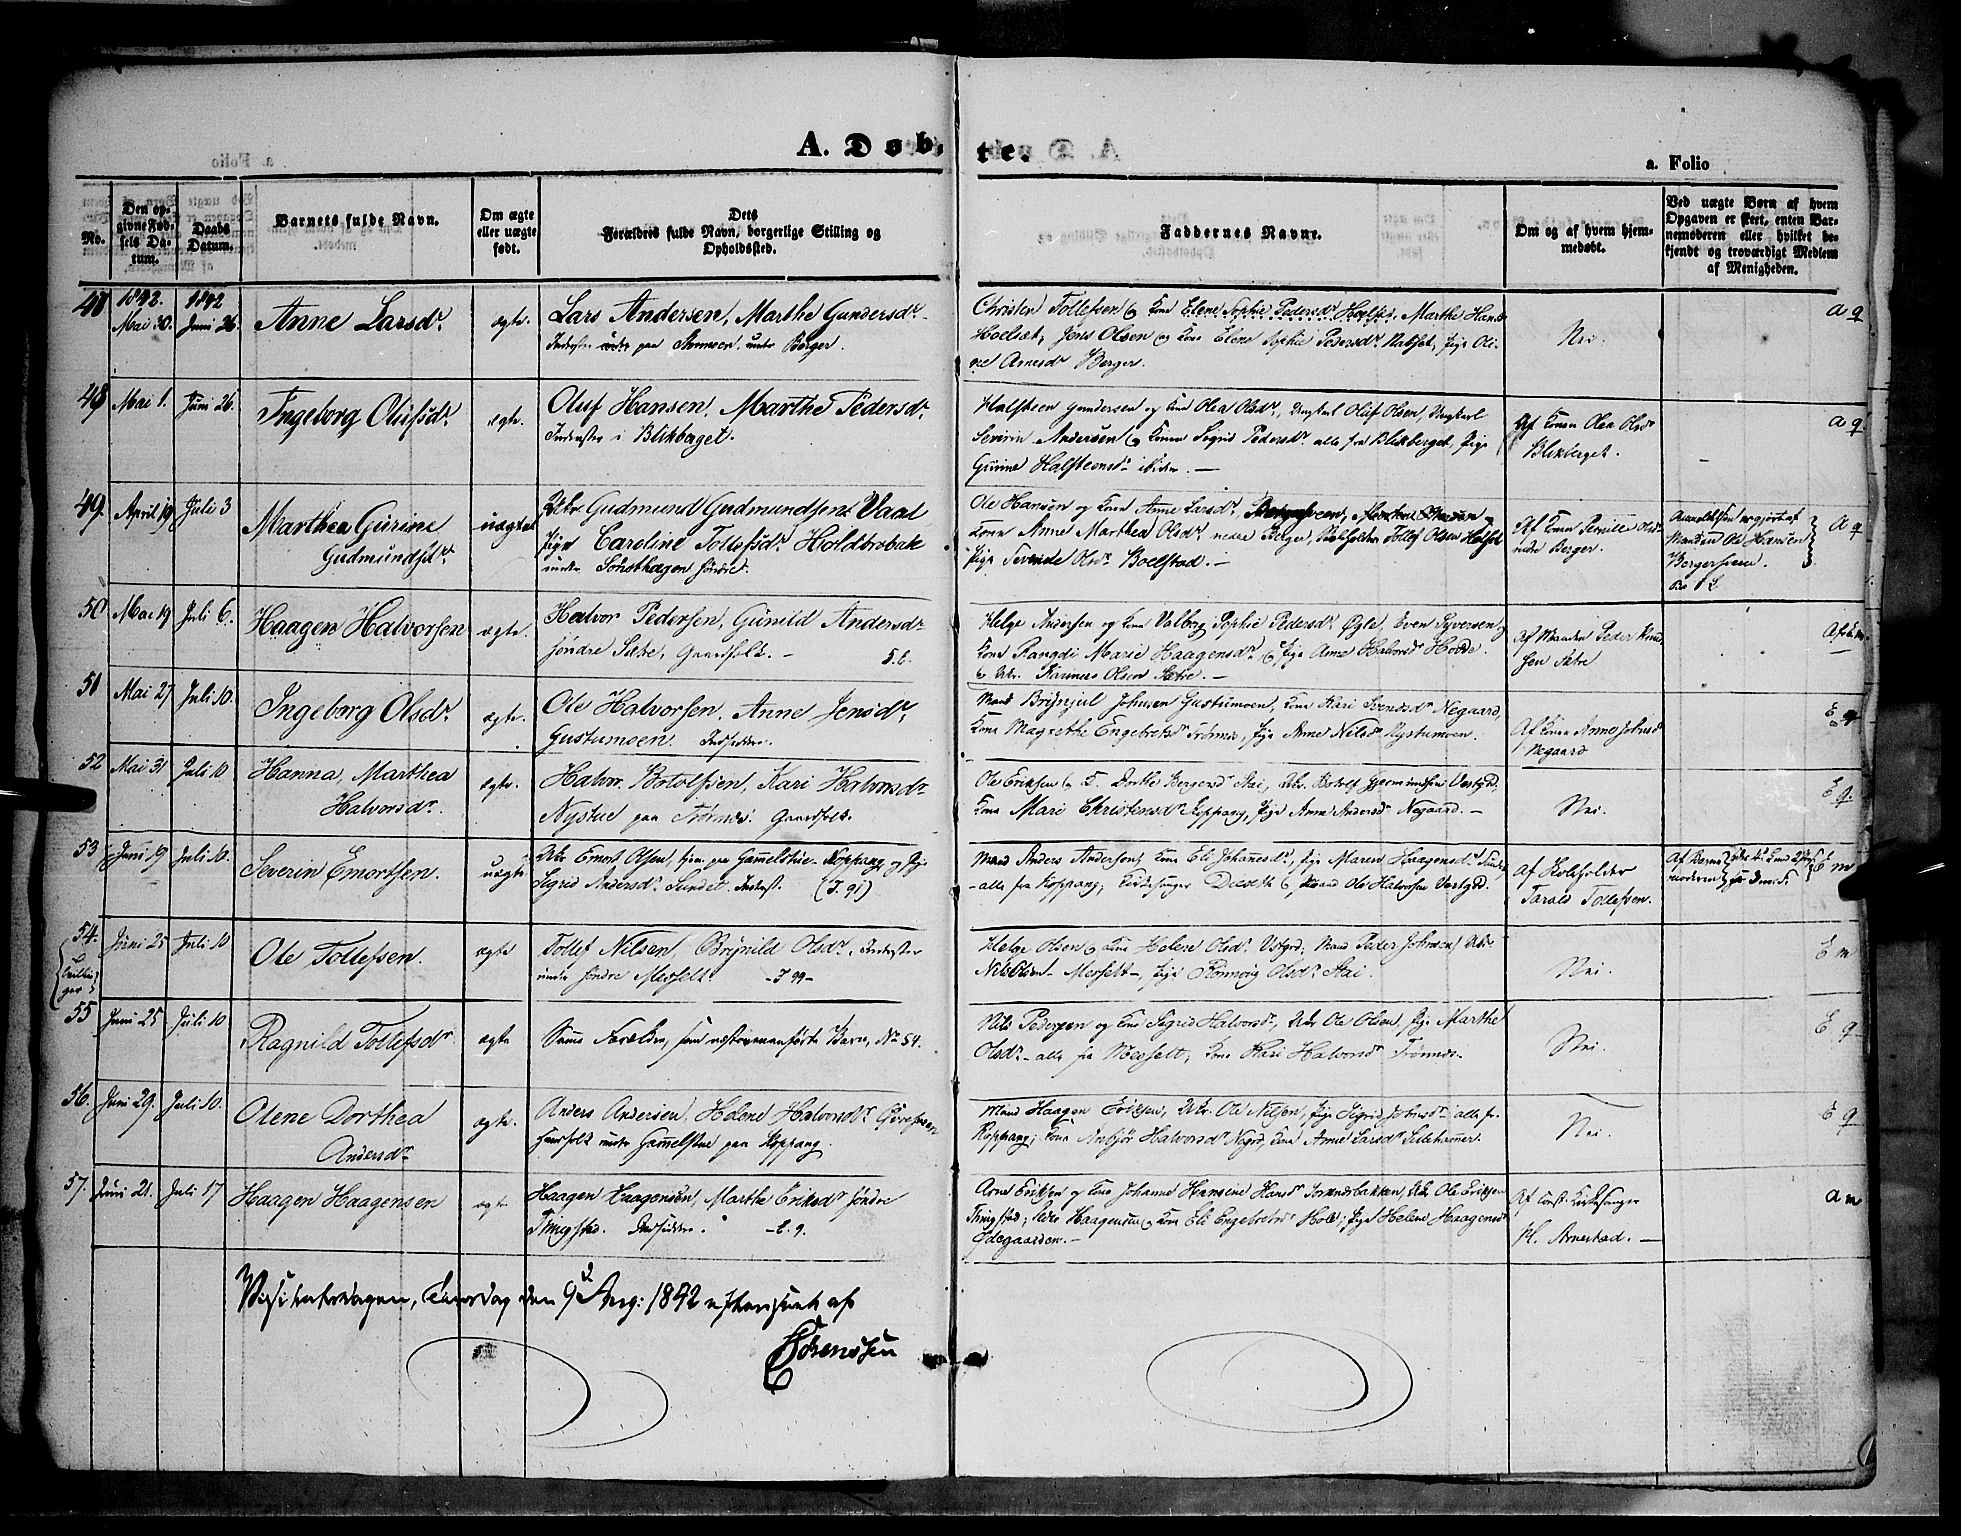 A. Døb-
te.
a. Folio
No.
Den op-
givne Fød-
sels Da-
tum.
Daabs
Datum.
Barnets fulde Navn.
Om ægte
eller uægte
født.
Dets
Forældres fulde Navn, borgerlige Stilling og
Opholdssted.
Faddernes Navne.
Om og af hvem hjem-
medøbt.
Ved uægte Børn af hvem
Opgaven er skeet, enten Bar-
nemoderen eller hvilket be-
kjendt og troværdigt Medlem
af Menigheden.
47 1842. Mai 30. 1842 Juni 26.
Anne Larsdr.
ægte.
Lars Andersen, Marthe Gundersdr.
Inderster paa Stumoen under Berger.
Christen Tollefsen og Kone Elene Sophie Pedersdr. Marthe Hansdr
Hoelset, Jens Olsen og Kone Elene Sophie Pedersdr. Pige Oli-
ne Arnesdr Berger.
Nei.
a q
48 Mai 1. Juni 26.
Ingeborg Olufsdr.
ægte.
Oluf Hansen, Marthe Pedersdr.
Inderster i Blikberget.
Halsteen Gundersen og Kone Olea Olsdr, Ungkarl Oluf Olsen, Ungkarl
Severin Andersen og Konen Sigrid Pedersdr alle fra Blikberget, Pige
Gurine Halsteensdr ibidem.
Af Konen Olea Olsdr
Blikberget.
a q.
49. April 19 Juli 3
Marthea Gurine
Gudmundsdr.
uægte
Ukr. Gudmund Gudmundsen Vaal
Pige Caroline Tollefsdr. Holdbrobak
under søndre.
Ole Hansen og Kone Anne Larsdr.
Konen Anne Marthea Olsdr. nedre Berger, Tollef Olsen
Pige Olsdr. Boelstad.
Af Konen Pernille Olsdr
nedre Berger.
Manden Ole Hansen
Bergersveen.
a q
50 Mai 19 Juli 6.
Haagen Halvorsen
ægte.
Halvor Pedersen, Gunild Andersdr
søndre Sætre, Gaardfolk. 5.6.
Helge Andersen og Kone Valborg Sophie Pedersdr. Øgle, Even Syversen og
Kone Rangdi Marie Haagensdr, Pige Anne Halvorsdr
og Ukr. Olsen Sætre.
Af Manden Peder Knud-
sen Sætre
51 Mai 27 Juli 10.
Ingeborg Olsdr.
ægte.
Ole Halvorsen. Anne Jensdr,
Gustumoen. Indsidder.
Mand Brynjul Johnsen Gustumoen, Kone Kari Svensdr Negaard,
Kone Magrethe Engebretsdr Trønnes, Pige Anne Nilsdr
Af Konen Anne Johnsdr
Negaard
E q
52 Mai 31 Juli 10
Hanna, Marthea
Halvorsdr.
ægte.
Halvor Botolfsen, Kari Halvorsdr
Nystue paa Trønnes. Gaardfolk.
Ole Eriksen og K. Dorthe Bergersdr Stai, Ukr. Botolf Vestgrd,
Kone Mari Christensdr Koppang, Pige Anne Andersdr Negaard.
Nei.
E q.
53 Juni 19 Juli 10.
Severin Emortsen.
uægte
Ukr Emort Olsen, hjem. paa Gammelstue Koppang og Pige
Sigrid Andersdr. Sundet. Inderst. (I. 91)
Mand Anders Andersen, Kone Eli Johannesdr., Pige Maren Haagensdr Sundet
alle fra Koppang, Kirkesanger Diesetk og Mand Ole Halvorsen Vestgrd.
Af Kokholder
Tarald Tollefsen.
Af Barne-
moderen
E m
54. Juni 25 Juli 10
Ole Tollefsen.
ægte
Tollef Nilsen, Brynild Olsdr. Inderster
under søndre Messelt. I 99
Helge Olsen og Kone Helene Olsdr Vestgrd, Mand Peder Johnsen, Ukr
Nils Olsen Messelt, Pige Olsdr Stai.
Nei.
E m
55 Juni 25 Juli 10
Ragnild Tollefsdr.
ægte
Samme Forældre, som næstovenanførte Barn, No 54.
Nils Pedersen og Kone Sigrid Halvorsdr., Ukr Ole Olsen, Pige Marthe
Olsdr alle fra Messelt, Kone Kari Halvorsdr Trønnes.
Nei.
E q
56. Juni 29. Juli 10.
Olene Dorthea
Andersdr
ægte.
Anders Andersen, Helene Halvorsdr.
Huusfolk under Gammelstue paa Koppang.
Mand Haagen Eriksen, Ukr. Ole Nilsen, Pige Sigrid Johnsdr alle fr.
Koppang; Kone Anbjør Halvorsdr Negrd, Kone Anne Larsdr Lillehammer.
Nei.
E q
57. Juni 21. Juli 17
Haagen Haagensen
ægte
Haagen Haagensen, Marthe Eriksdr søndre
Tingstad. Indsidder. 6.9.
Arne Eriksen og Kone Johanne Hansine Hansdr, Ukr. Ole Eriksen
Tingstad, Peder Haagensen og Kone Eli Engebretsdr Hole, Pige Helene Haagensdr
Ødegaarden.
Af Const. Kirkesanger
Pl. Arnestad.
a m
Visitatsdagen, Tirsdag den 9d Aug: 1842 efterseet af
Sørenssen